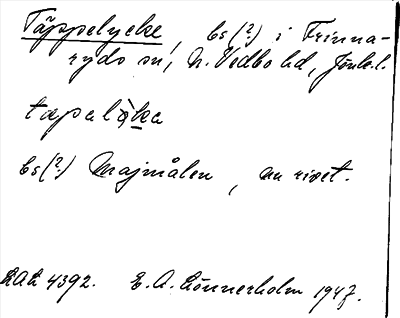 Täppelycke, bs(?) i Frinna-
ryds sn, N. Vedbo hd, Jönk.l.
bs(?) Majmålen, nu rivet.
4392. E. A. Lönnerholm 1947.